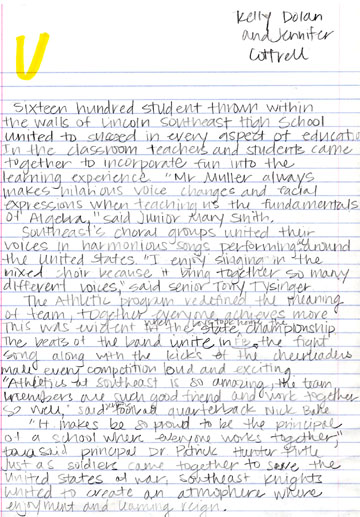 Kelly Dolan
and Jennifer
Cottrell
U
Sixteen hundred student thrown within
the walls of Lincoln Southeast High School
united to succeed in every aspect of educatio
In the classroom teachers and students came
together to incorporate fun into the
learning experience. "Mr Muller always
makes hilarious voice changes and facial
expressions when teaching us the fundamentals
of Algebra," said Junior Mary Smith.
Southeast's choral groups united their
voices in harmonious songs performing around
the United States. "I enjoy singing in the
mixed choir because it bring together so many
different voices," said senior Tory Tysinger.
The Athletic program redefined the meaning
of team, together everyone achieves more
This was evident the state championship
The beats of the band unite in the fight
song along with the kicks of the cheerleaders
make every competition loud and exciting.
"Athletics at southeast is so amazing, the team
members are such good friend and work together
so well," said football quarterback Nick
"It makes be so proud to be the principal
of a school where everyone works together,"
said principal Dr Patrick Hunter
Just as soldiers came together to the
United States at war, Southeast knights
united to create an atmosphere where
enjoyment and learning reign.